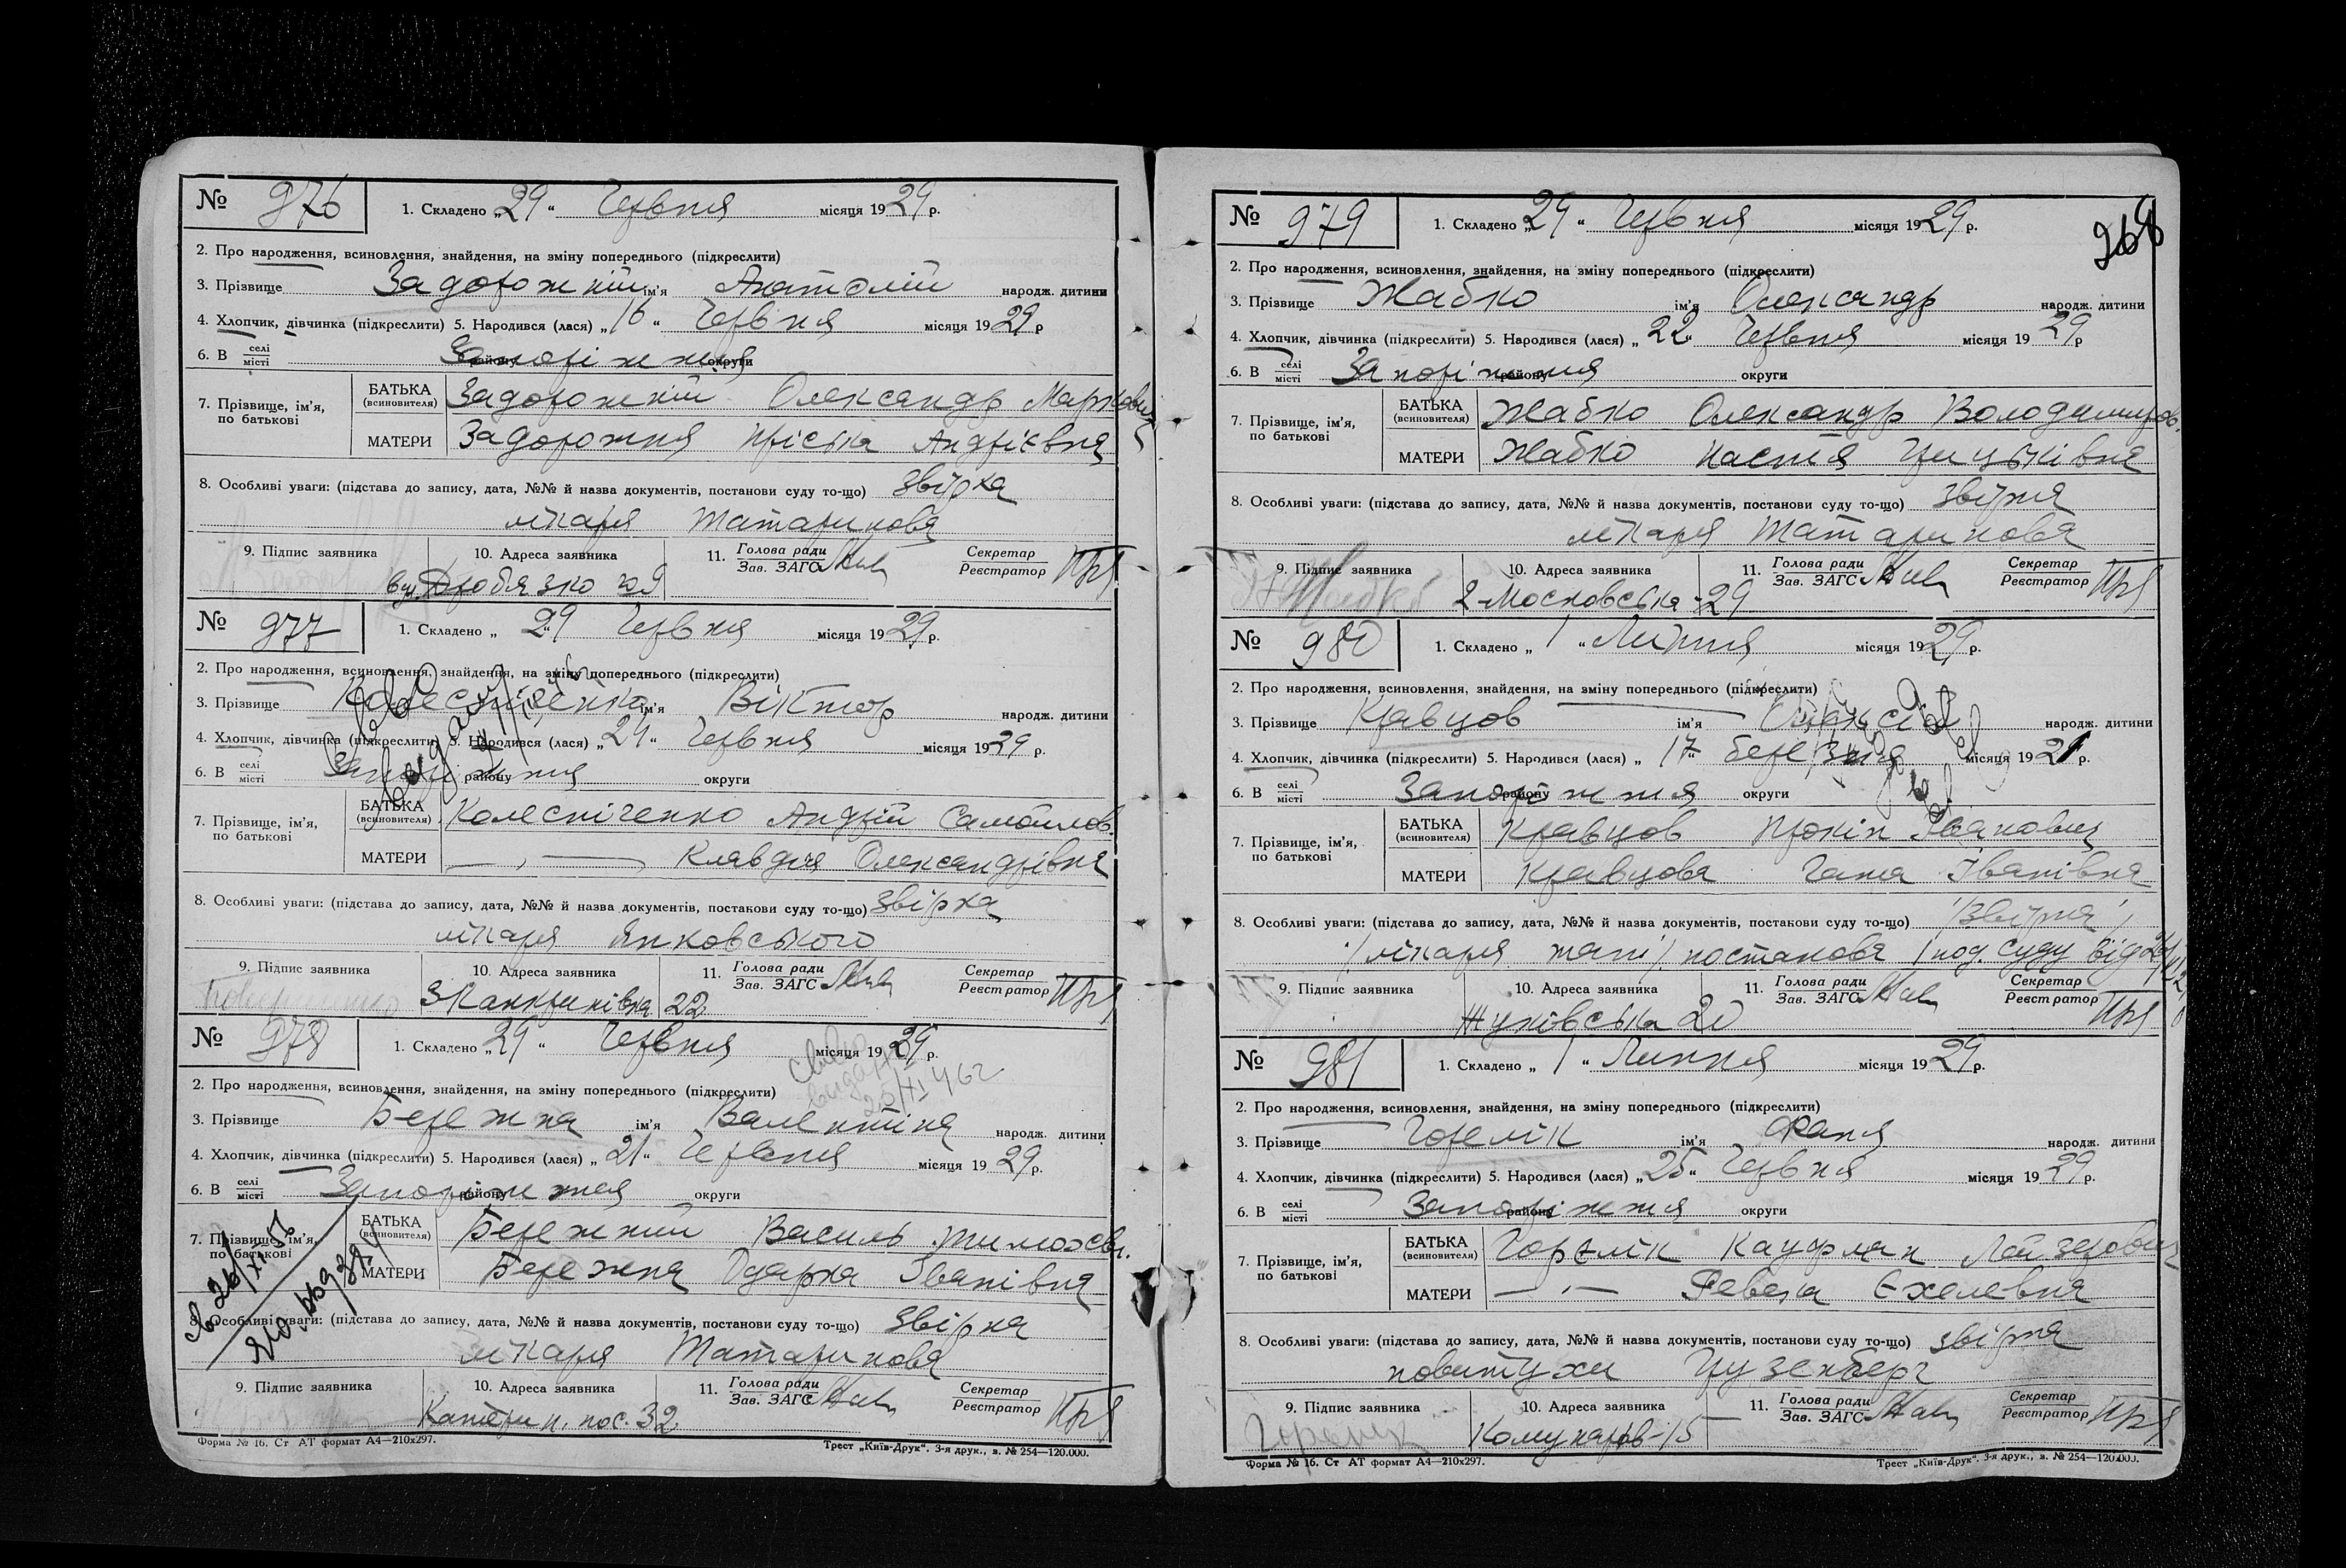 № 976
1. Складено „29“ Червня місяця 1929 р.
2. Про народження, всиновлення, знайдення, на зміну попереднього (підкреслити)
3. Прізвище Задорожній ім'я Анатолій народж. дитини
4. Хлопчик, дівчинка (підкреслити) 5. Народився (лася) „16“ Червня місяця 1929 р
6. В селі місті Запоріжжя району округи
7. Прізвище, ім'я, по батькові
БАТЬКА (всиновителя) Задорожній Олександр Маркович
МАТЕРИ Задорожня Пріська Андріївна
8. Особливі уваги: (підстава до запису, дата, №№ й назва документів, постанови суду то-що) Звірка
лікаря Татаринова
9. Підпис заявника 10. Адреса заявника 11. Голова ради Зав. ЗАГС Секретар Реєстратор
вул. Дробязко
№ 977
1. Складено „29“ Червня місяця 1929 р.
2. Про народження, всиновлення, знайдення, на зміну попереднього (підкреслити)
3. Прізвище Колесніченко ім'я Віктор народж. дитини
4. Хлопчик, дівчинка (підкреслити) 5. Народився (лася) „21“ Червня місяця 1929 р.
6. В селі місті Запоріжжя району округи
7. Прізвище, ім'я, по батькові
БАТЬКА (всиновителя) Колесніченко Андрій Самойлов.
МАТЕРИ — „ — Клавдія Олександрівна
8. Особливі уваги: (підстава до запису, дата, №№ й назва документів, постанови суду то-що) Звірка
лікаря Янковського
9. Підпис заявника 10. Адреса заявника 11. Голова ради Зав. ЗАГС Секретар Реєстратор
22
№ 978
1. Складено „29“ Червня місяця 1929 р.
2. Про народження, всиновлення, знайдення, на зміну попереднього (підкреслити)
3. Прізвище Бережна ім'я Валентіна народж. дитини
4. Хлопчик, дівчинка (підкреслити) 5. Народився (лася) „21“ Червня місяця 1929 р.
6. В селі місті Запоріжжя району округи
7. Прізвище, ім'я, по батькові
БАТЬКА (всиновителя) Бережний Василь Тимохєв.
МАТЕРИ Бережна Одарка Іванівна
8. Особливі уваги: (підстава до запису, дата, №№ й назва документів, постанови суду то-що) Звірка
лікаря Татаринова
9. Підпис заявника 10. Адреса заявника 11. Голова ради Зав. ЗАГС Секретар Реєстратор
Катерин. пос. 32
Форма № 16. Ст АТ формат А4—210x297. Трест „Київ-Друк“. 3-я друк., з. № 254—120.000.
268
№ 979
1. Складено „29“ Червня місяця 1929 р.
2. Про народження, всиновлення, знайдення, на зміну попереднього (підкреслити)
3. Прізвище Жабко ім'я Олександр народж. дитини
4. Хлопчик, дівчинка (підкреслити) 5. Народився (лася) „22“ Червня місяця 1929 р
6. В селі місті Запоріжжя району округи
7. Прізвище, ім'я, по батькові
БАТЬКА (всиновителя) Жабко Олександр Володимиров.
МАТЕРИ Жабко Настя
8. Особливі уваги: (підстава до запису, дата, №№ й назва документів, постанови суду то-що) Звірка
лікаря Татаринова
9. Підпис заявника 10. Адреса заявника 11. Голова ради Зав. ЗАГС Секретар Реєстратор
Жабко 2-Московська - 29
№ 980
1. Складено „1“ Липня місяця 1929 р.
2. Про народження, всиновлення, знайдення, на зміну попереднього (підкреслити)
3. Прізвище Кравцов ім'я народж. дитини
4. Хлопчик, дівчинка (підкреслити) 5. Народився (лася) „17“ березня місяця 1921 р.
6. В селі місті Запоріжжя району округи
7. Прізвище, ім'я, по батькові
БАТЬКА (всиновителя) Кравцов Прокіп Іванович
МАТЕРИ Кравцова Ганна Іванівна
8. Особливі уваги: (підстава до запису, дата, №№ й назва документів, постанови суду то-що) Звірка
лікаря постанова суду від
9. Підпис заявника 10. Адреса заявника 11. Голова ради Зав. ЗАГС Секретар Реєстратор
Жуковська 20
№ 981
1. Складено „1“ Липня місяця 1929 р.
2. Про народження, всиновлення, знайдення, на зміну попереднього (підкреслити)
3. Прізвище Горелік ім'я Фаня народж. дитини
4. Хлопчик, дівчинка (підкреслити) 5. Народився (лася) „25“ Червня місяця 1929 р.
6. В селі місті Запоріжжя району округи
7. Прізвище, ім'я, по батькові
БАТЬКА (всиновителя) Горелік Кауфман Лейзерович
МАТЕРИ — „ — Ревека Єхелевна
8. Особливі уваги: (підстава до запису, дата, №№ й назва документів, постанови суду то-що) звірка
повитухи Цузенберг
9. Підпис заявника 10. Адреса заявника 11. Голова ради Зав. ЗАГС Секретар Реєстратор
Горелик Комунарів - 15
Форма № 16. Ст АТ формат А4—210x297. Трест „Київ-Друк“. 3-я друк., з. № 254—120.000.